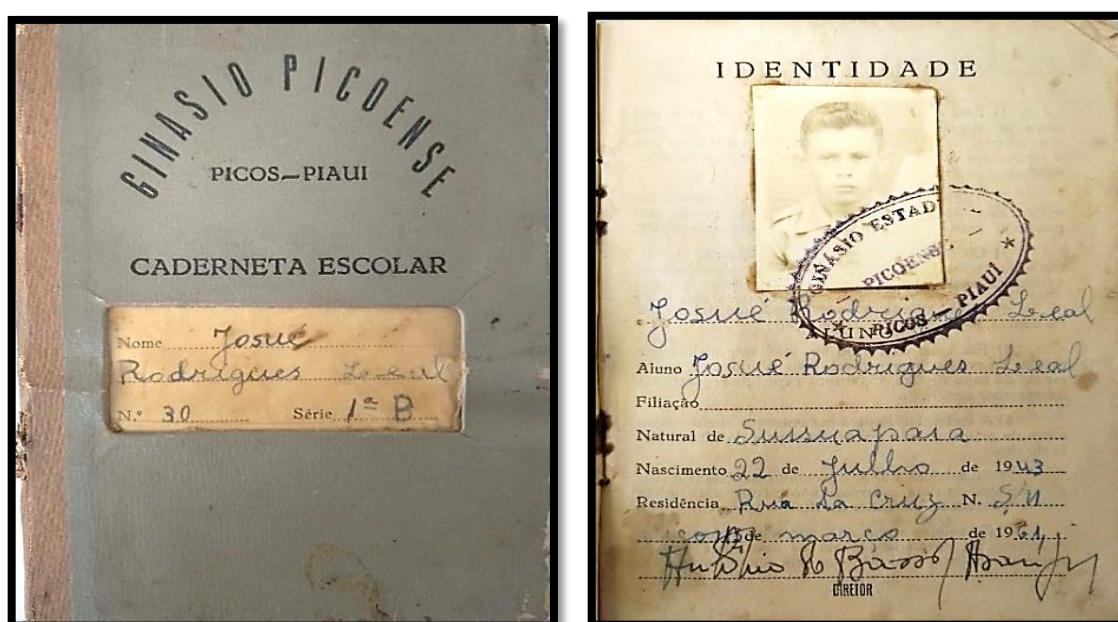 GINASIO PICOENSE
PICOS—PIAUI
CADERNETA ESCOLAR
Nome Josué
Rodrigues Leal
N.º 30 Série 1ª B
IDENTIDADE
GINÁSIO ESTAD
PICOENSE
PICOS — PIAUÍ
Josué Rodrigues Leal
ALUNO
Aluno Josué Rodrigues Leal
Filiação
Natural de Sussuapara
Nascimento 22 de Julho de 1943
Residência Rua da Cruz N. S/N
de março de 1961
Antônio de Barros Araújo
DIRETOR